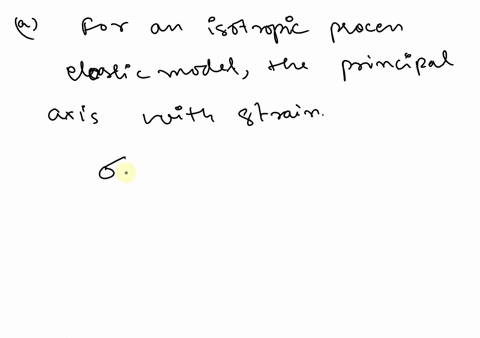 (a) For an isotropic procen
elastic model, the principal
axis with strain.
σ